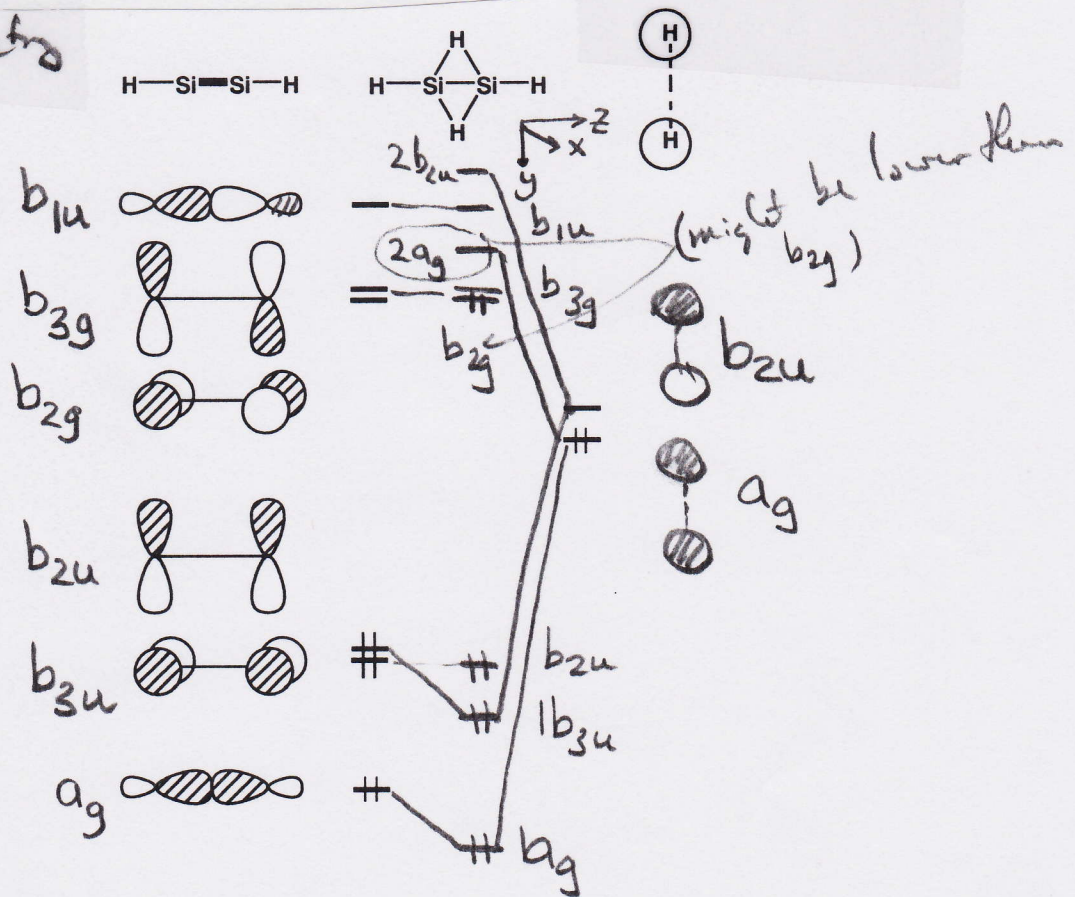 H
H—Si—Si—H
H
H—Si—Si—H
H
H
H
z
x
y
2b2u
b1u
b1u
(might be lower than
b2g)
2ag
b3g
b3g
b2g
b2g
b2u
ag
b2u
b2u
b3u
1b3u
ag
bag